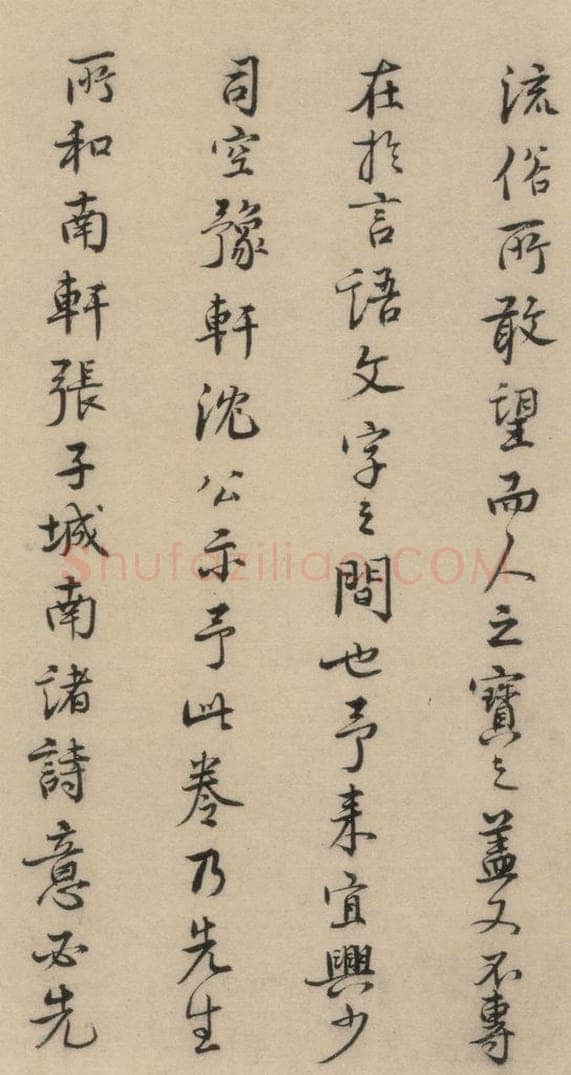 流俗所敢望而人之寶之蓋又不專
在於言語文字之間也予来宜興少
司空豫軒沈公示予此卷乃先生
所和南軒張子城南諸詩意必先
Shufaziliao.COM